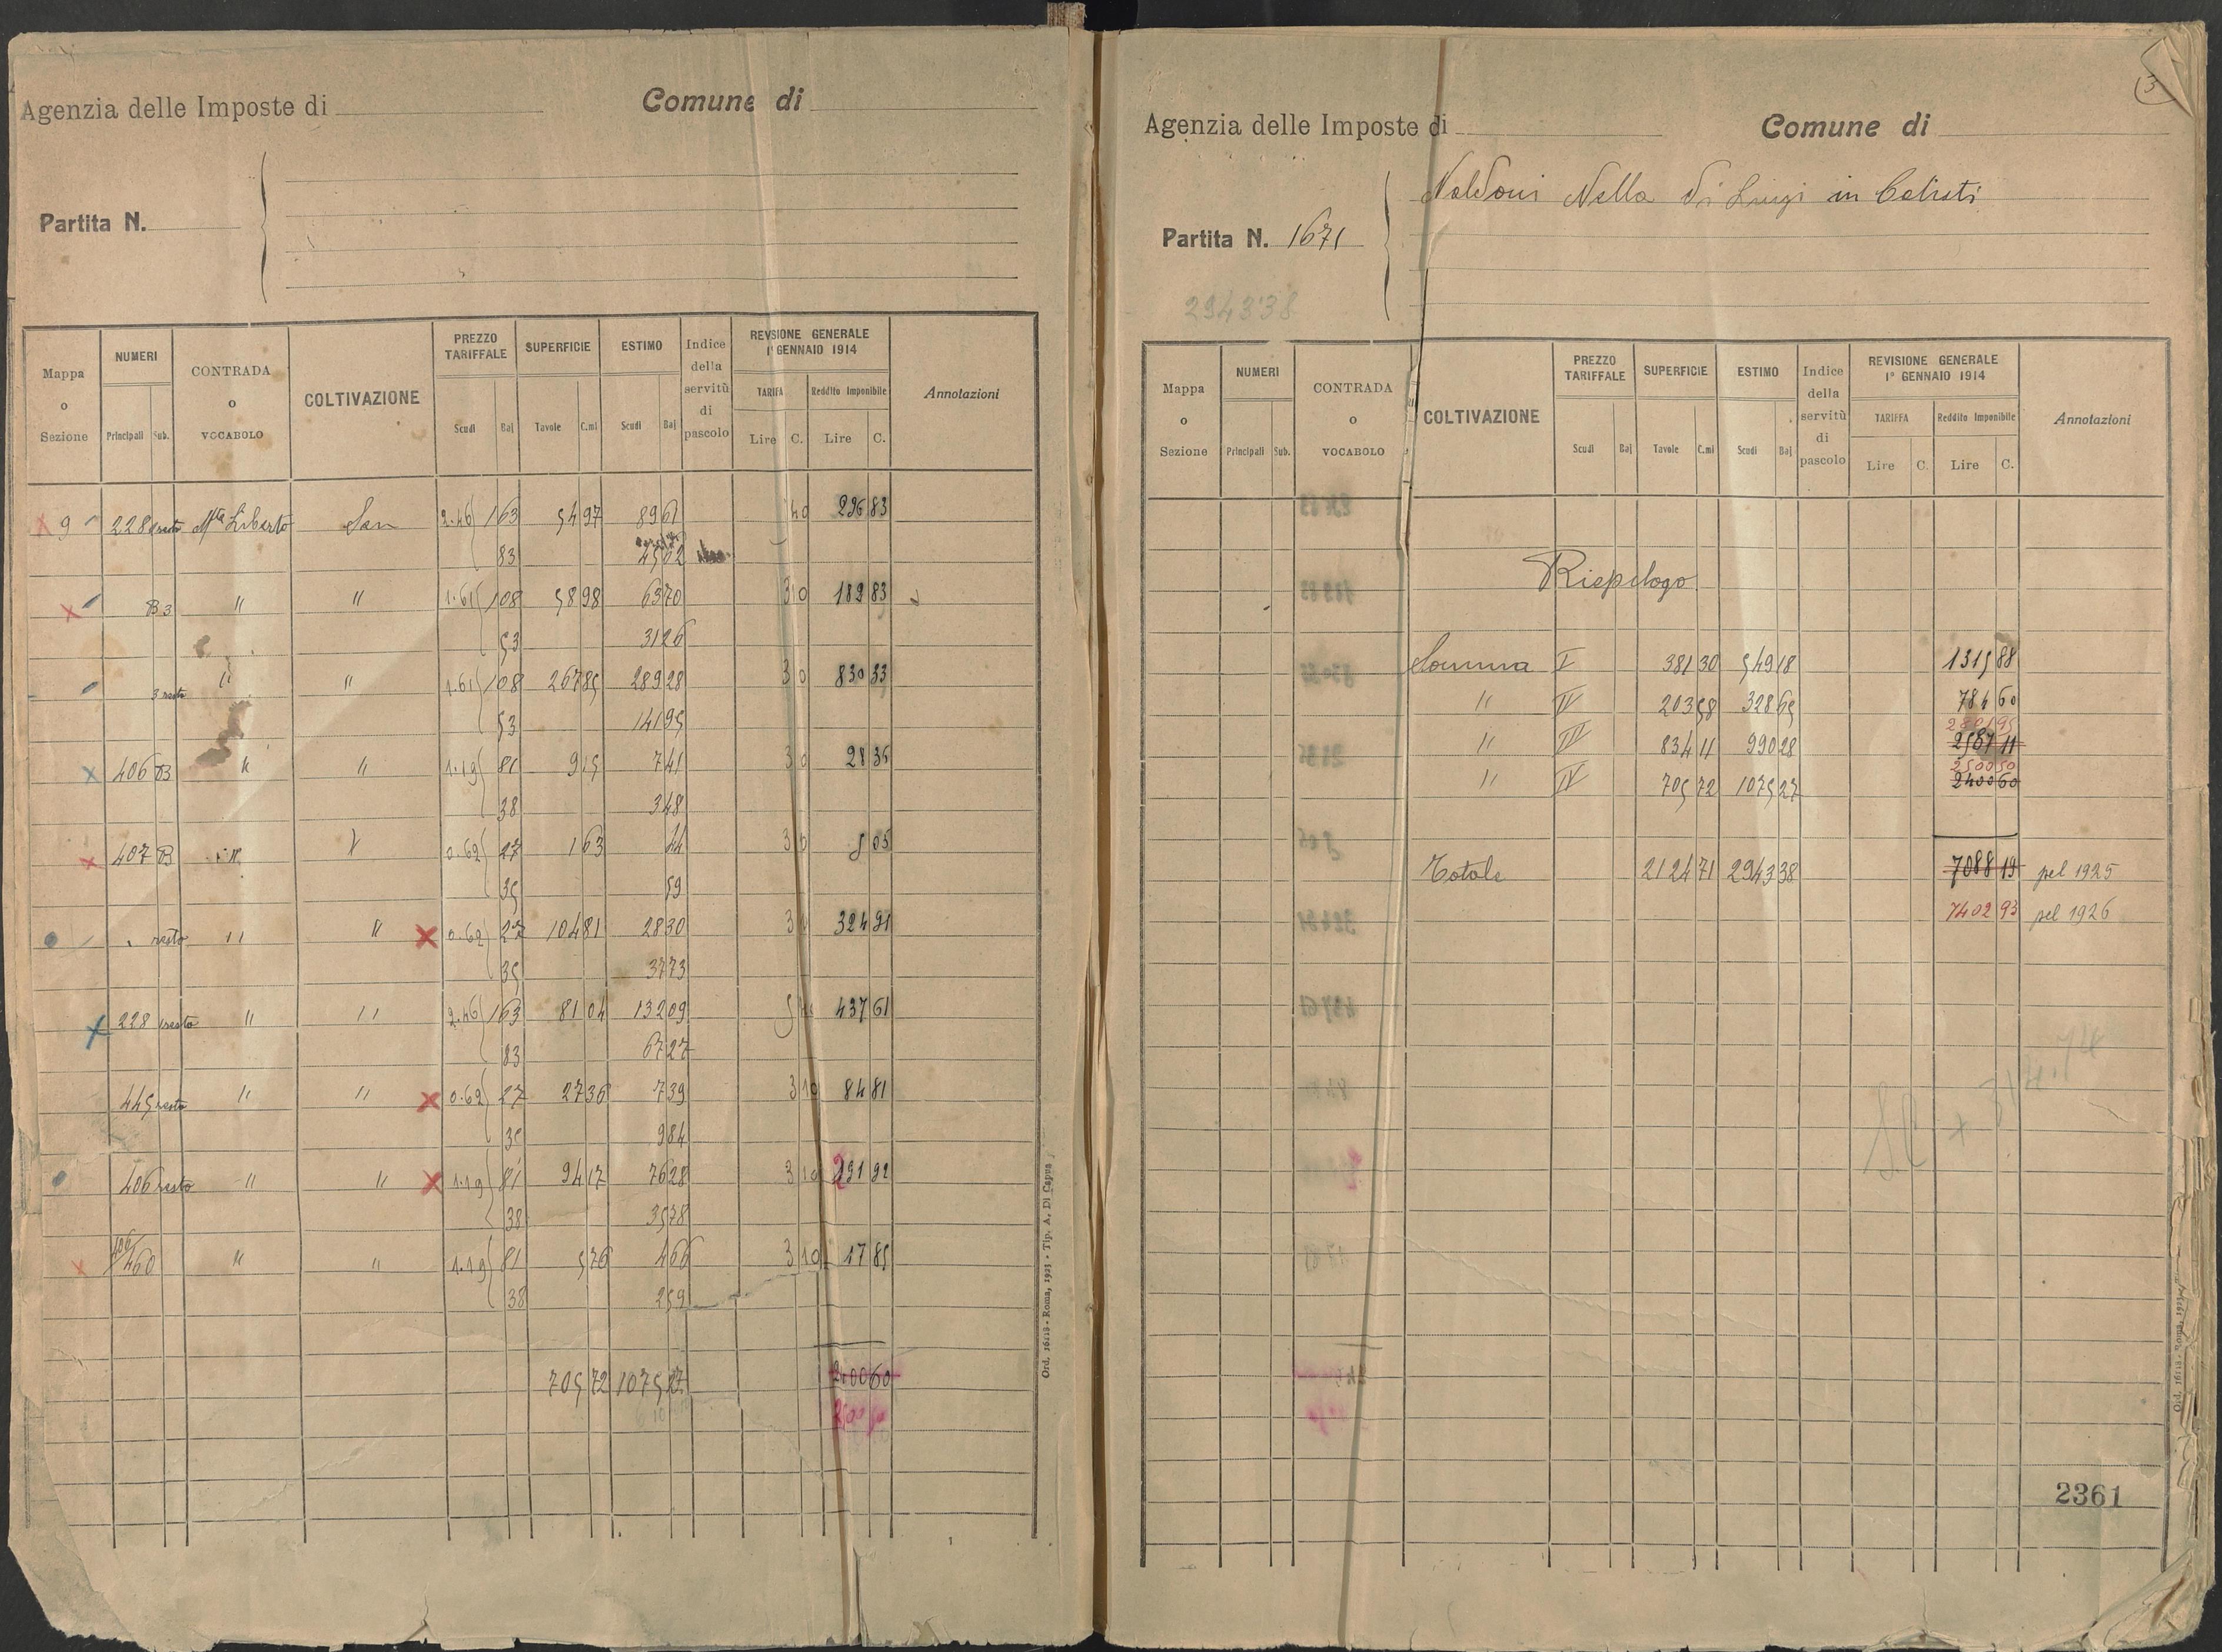 Agenzia delle Imposte di
Comune di
Partita N.
Mappa o Sezione
NUMERI
Principali Sub.
CONTRADA o VOCABOLO
COLTIVAZIONE
PREZZO TARIFFALE
Scudi Baj
SUPERFICIE
Tavole C.mi
ESTIMO
Scudi Baj
Indice della servitù di pascolo
REVSIONE GENERALE
1º GENNAIO 1914
TARIFA
Lire C.
Reddito Imponibile
Lire C.
Annotazioni
9 228 resto 2.46 163 54 97 89 61 40 296 83
83 45 02
B3 " " 1.61 108 58 98 63 70 3 0 189 83
53 31 26
3 resto " " 1.61 108 267 85 289 28 3 0 830 33
53 141 95
406 B " " 1.19 81 9 15 7 41 3 0 28 36
38 3 48
407 B " 0.62 27 1 63 44 3 05
35 59
resto " " 0.62 27 104 81 28 30 3 324 91
35 37 73
228 resto " " 2.46 163 81 04 132 09 5 437 61
83 67 27
445 resto " " 0.62 27 27 36 7 39 3 10 84 81
35 9 84
406 resto " " 1.19 81 94 17 76 28 3 10 291 92
38 35 78
406/460 " " 1.19 81 5 76 4 66 3 10 17 85
38 2 59
705 72 1075 27 2400 60
2500 50
Ord. 16118 - Roma, 1923 - Tip. A. Di Capua
3
Agenzia delle Imposte di
Comune di
Naldoni Nella di Luigi in
Partita N. 1671
294338
Mappa o Sezione
NUMERI
Principali Sub.
CONTRADA o VOCABOLO
COLTIVAZIONE
PREZZO TARIFFALE
Scudi Baj
SUPERFICIE
Tavole C.mi
ESTIMO
Scudi Baj
Indice della servitù di pascolo
REVISIONE GENERALE
1º GENNAIO 1914
TARIFFA
Lire C.
Reddito Imponibile
Lire C.
Annotazioni
Riepilogo
Somma I 381 30 549 18 1315 88
" II 203 58 328 65 784 60
2801 95
" III 834 11 990 28 2587 11
2500 50
" IV 705 72 1075 27 2400 60
Totale 2124 71 2943 38 7088 19 pel 1925
7402 93 pel 1926
314.74
2361